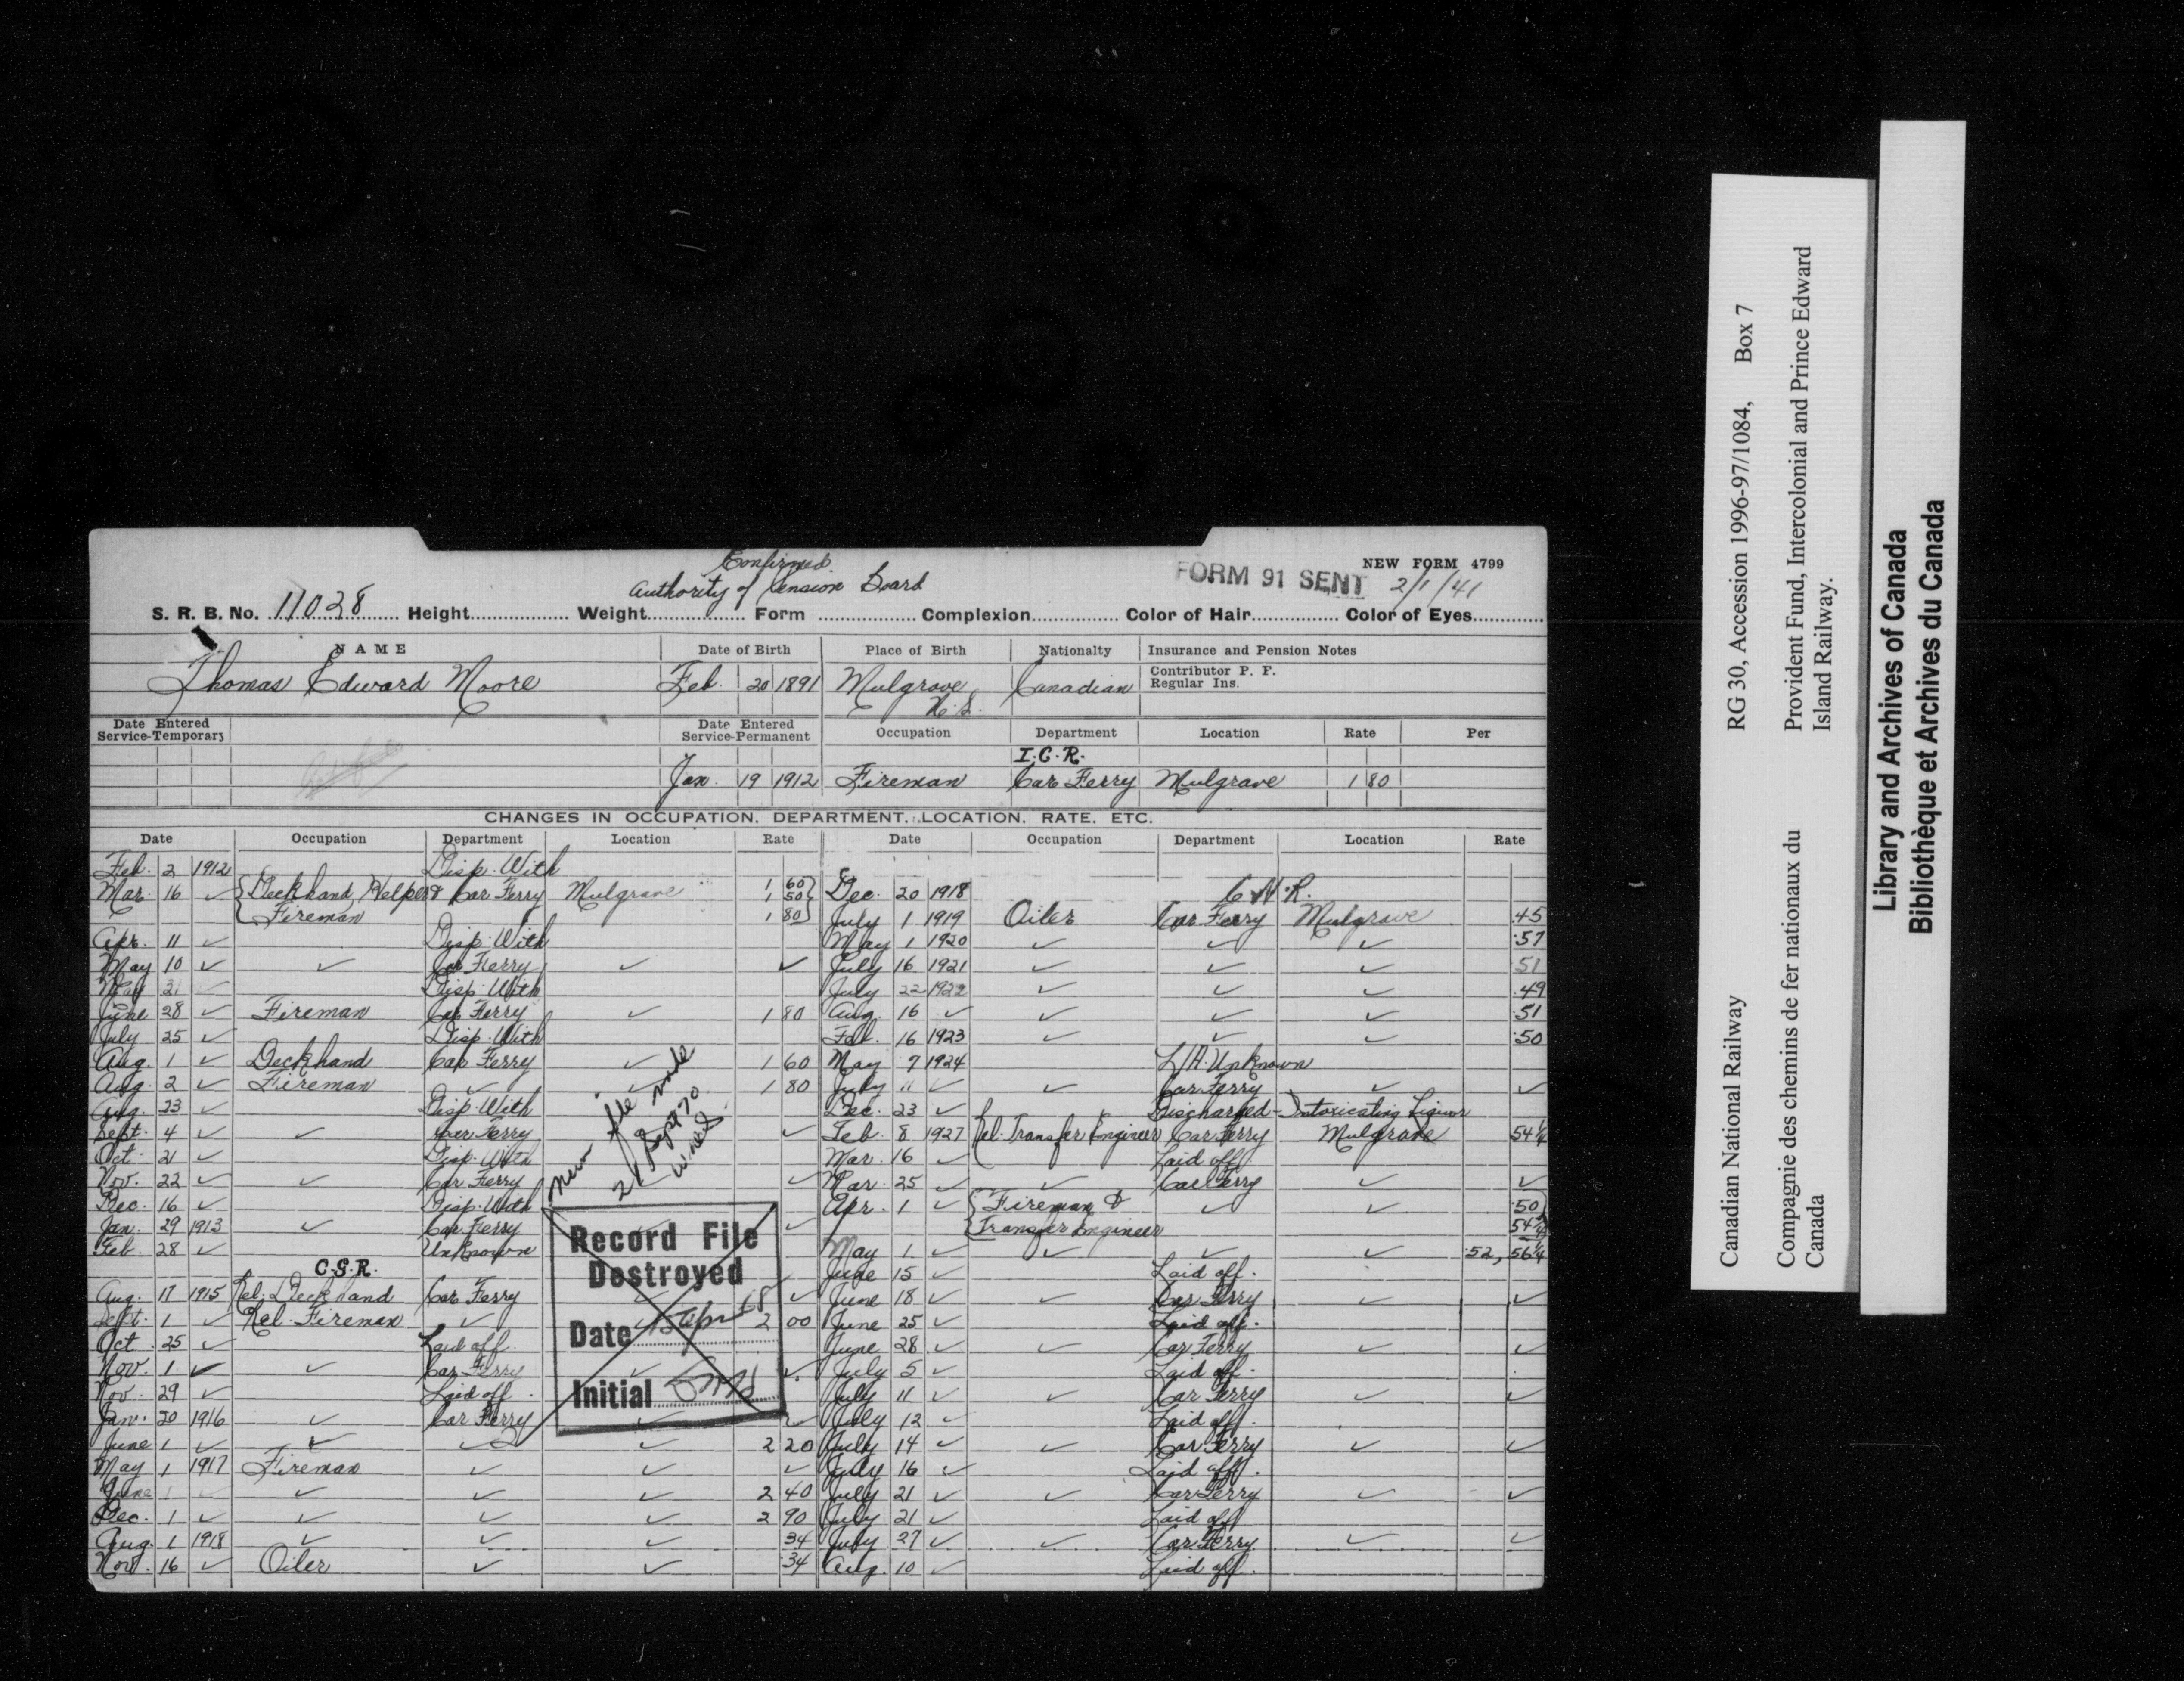 Confirmed
Authority of Pension Board
FORM 91 SENT 2/1/41
NEW FORM 4799
S. R. B. No. 11028 Height Weight Form Complexion Color of Hair Color of Eyes
NAME Date of Birth Place of Birth Nationalty Insurance and Pension Notes
Thomas Edward Moore Feb. 20 1891 Mulgrave N.S. Canadian Contributor P. F.
Regular Ins.
Date Entered Service-Temporary Date Entered Service-Permanent Occupation Department Location Rate Per
I.C.R.
Jan. 19 1912 Fireman Car Ferry Mulgrave 1 80
CHANGES IN OCCUPATION, DEPARTMENT, LOCATION, RATE, ETC.
Date Occupation Department Location Rate
Feb. 2 1912 Disp. With
Mar. 16 ✓ Deckhand, Helper & Car Ferry Mulgrave 1 60
1 50
Fireman 1 80
Apr. 11 ✓ Disp. With
May 10 ✓ ✓ Car Ferry ✓ ✓
May 21 ✓ Disp. With
June 28 ✓ Fireman Car Ferry ✓ 1 80
July 25 ✓ Disp. With
Aug. 1 ✓ Deckhand Car Ferry ✓ 1 60
Aug. 2 ✓ Fireman ✓ ✓ 1 80
Aug. 23 ✓ Disp. With
Sept. 4 ✓ ✓ Car Ferry ✓
Oct. 21 ✓ Disp. With
Nov. 22 ✓ ✓ Car Ferry ✓
Dec. 16 ✓ Disp. With
Jan. 29 1913 ✓ Car Ferry ✓
Feb. 28 ✓ Unknown
C.S.R.
Aug. 17 1915 Rel. Deckhand Car Ferry ✓ ✓
Sept. 1 ✓ Rel. Fireman ✓ ✓ 2 00
Oct. 25 ✓ Laid off
Nov. 1 ✓ ✓ Car Ferry ✓ ✓
Nov. 29 ✓ Laid off.
Jan. 20 1916 ✓ Car Ferry ✓ ✓
June 1 ✓ ✓ ✓ ✓ 2 20
May 1 1917 Fireman ✓ ✓ ✓
June 1 ✓ ✓ ✓ ✓ 2 40
Dec. 1 ✓ ✓ ✓ ✓ 2 90
Aug. 1 1918 ✓ ✓ ✓ 34
Nov. 16 ✓ Oiler ✓ ✓ .34
New file made
21 Sept 70
Record File
Destroyed
Date 15 Apr 68
Initial
Date Occupation Department Location Rate
Dec. 20 1918 C.N.R.
July 1 1919 Oiler Car Ferry Mulgrave .45
May 1 1920 ✓ ✓ ✓ .57
July 16 1921 ✓ ✓ ✓ .51
July 22 1922 ✓ ✓ ✓ .49
Aug. 16 ✓ ✓ ✓ ✓ .51
Feb. 16 1923 ✓ ✓ ✓ .50
May 7 1924 L/A. Unknown
July 11 ✓ ✓ Car Ferry ✓ ✓
Dec. 23 ✓ Discharged - Intoxicating Liquor
Feb. 8 1927 Rel. Transfer Engineer Car Ferry Mulgrave 54¼
Mar. 16 ✓ Laid off.
Mar. 25 ✓ ✓ Car Ferry ✓ ✓
Apr. 1 ✓ Fireman & ✓ ✓ .50
Transfer Engineer 54¼
May 1 ✓ ✓ ✓ ✓ .52, 56¼
June 15 ✓ Laid off.
June 18 ✓ ✓ Car Ferry ✓ ✓
June 25 ✓ Laid off.
June 28 ✓ ✓ Car Ferry ✓ ✓
July 5 ✓ Laid off.
July 11 ✓ ✓ Car Ferry ✓ ✓
July 12 ✓ Laid off.
July 14 ✓ ✓ Car Ferry ✓ ✓
July 16 ✓ Laid off.
July 21 ✓ ✓ Car Ferry ✓ ✓
July 21 ✓ Laid off
July 27 ✓ ✓ Car Ferry ✓ ✓
Aug. 10 ✓ Laid off.
Canadian National Railway RG 30, Accession 1996-97/1084, Box 7
Compagnie des chemins de fer nationaux du Provident Fund, Intercolonial and Prince Edward
Canada Island Railway.
Library and Archives of Canada
Bibliothèque et Archives du Canada